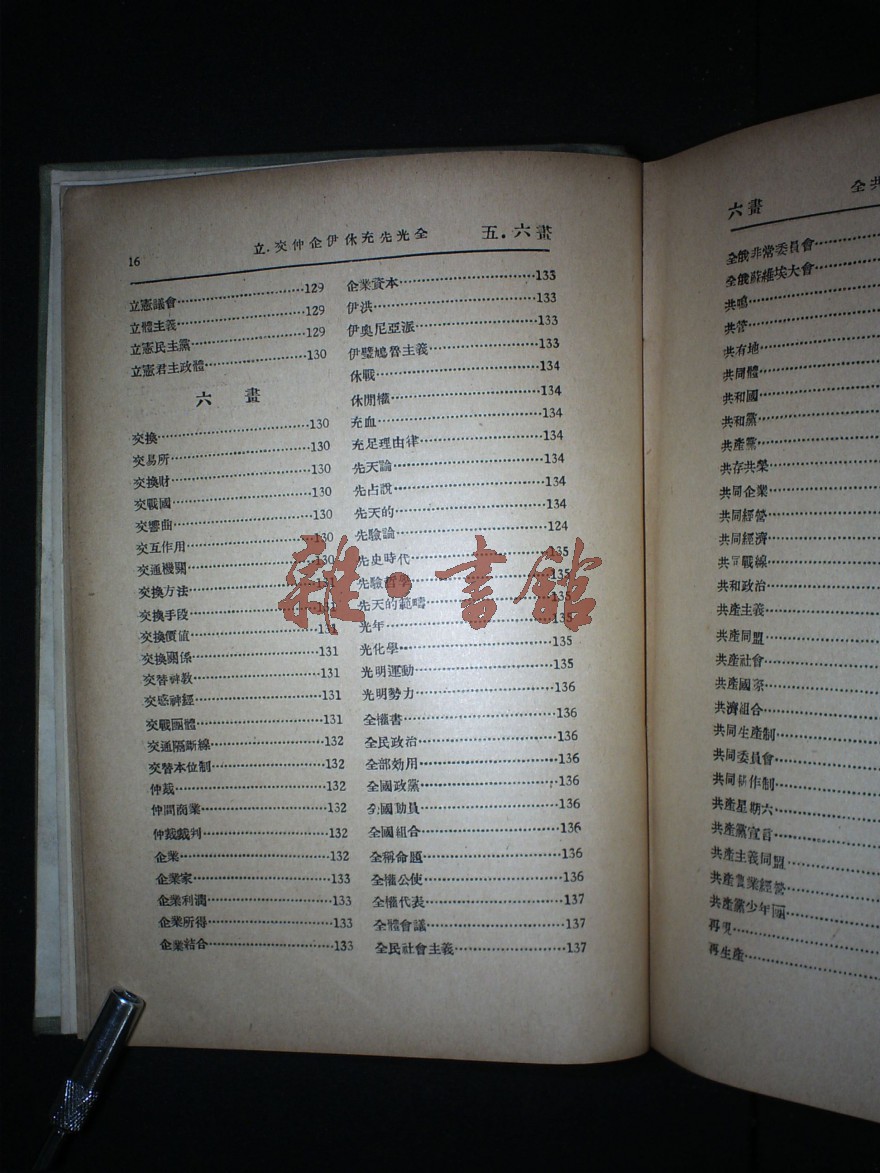 16
立·交仲企伊休充先光全
五·六畫
立憲議會…………129
立體主義…………129
立憲民主黨…………129
立憲君主政體…………130
六 畫
交換…………130
交易所…………130
交換財…………130
交戰國…………130
交響曲…………130
交互作用…………130
交通機關…………130
交換方法…………131
交換手段…………131
交換價值…………131
交換關係…………131
交替神教…………131
交感神經…………131
交戰團體…………131
交通隔斷線…………132
交替本位制…………132
仲裁…………132
仲間商業…………132
仲裁裁判…………132
企業…………132
企業家…………133
企業利潤…………133
企業所得…………133
企業結合…………133
企業資本…………133
伊洪…………133
伊奧尼亞派…………133
伊璧鳩魯主義…………133
休戰…………134
休閒權…………134
充血…………134
充足理由律…………134
先天論…………134
先占說…………134
先天的…………134
先驗論…………124
先史時代…………135
先驗哲學…………135
先天的範疇…………135
光年…………135
光化學…………135
光明運動…………135
光明勢力…………136
全權書…………136
全民政治…………136
全部効用…………136
全國政黨…………136
全國動員…………136
全國組合…………136
全稱命題…………136
全權公使…………136
全權代表…………137
全體會議…………137
全民社會主義…………137
六畫
全共
全俄非常委員會…………
全俄蘇維埃大會…………
共鳴…………
共管…………
共有地…………
共同體…………
共和國…………
共和黨…………
共產黨…………
共存共榮…………
共同企業…………
共同經營…………
共同經濟…………
共同戰線…………
共和政治…………
共產主義…………
共產同盟…………
共產社會…………
共產國家…………
共濟組合…………
共同生產制…………
共同委員會…………
共同耕作制…………
共產星期六…………
共產黨宣言…………
共產主義同盟…………
共產農業經營…………
共產黨少年團…………
再現…………
再生產…………
雜·書館